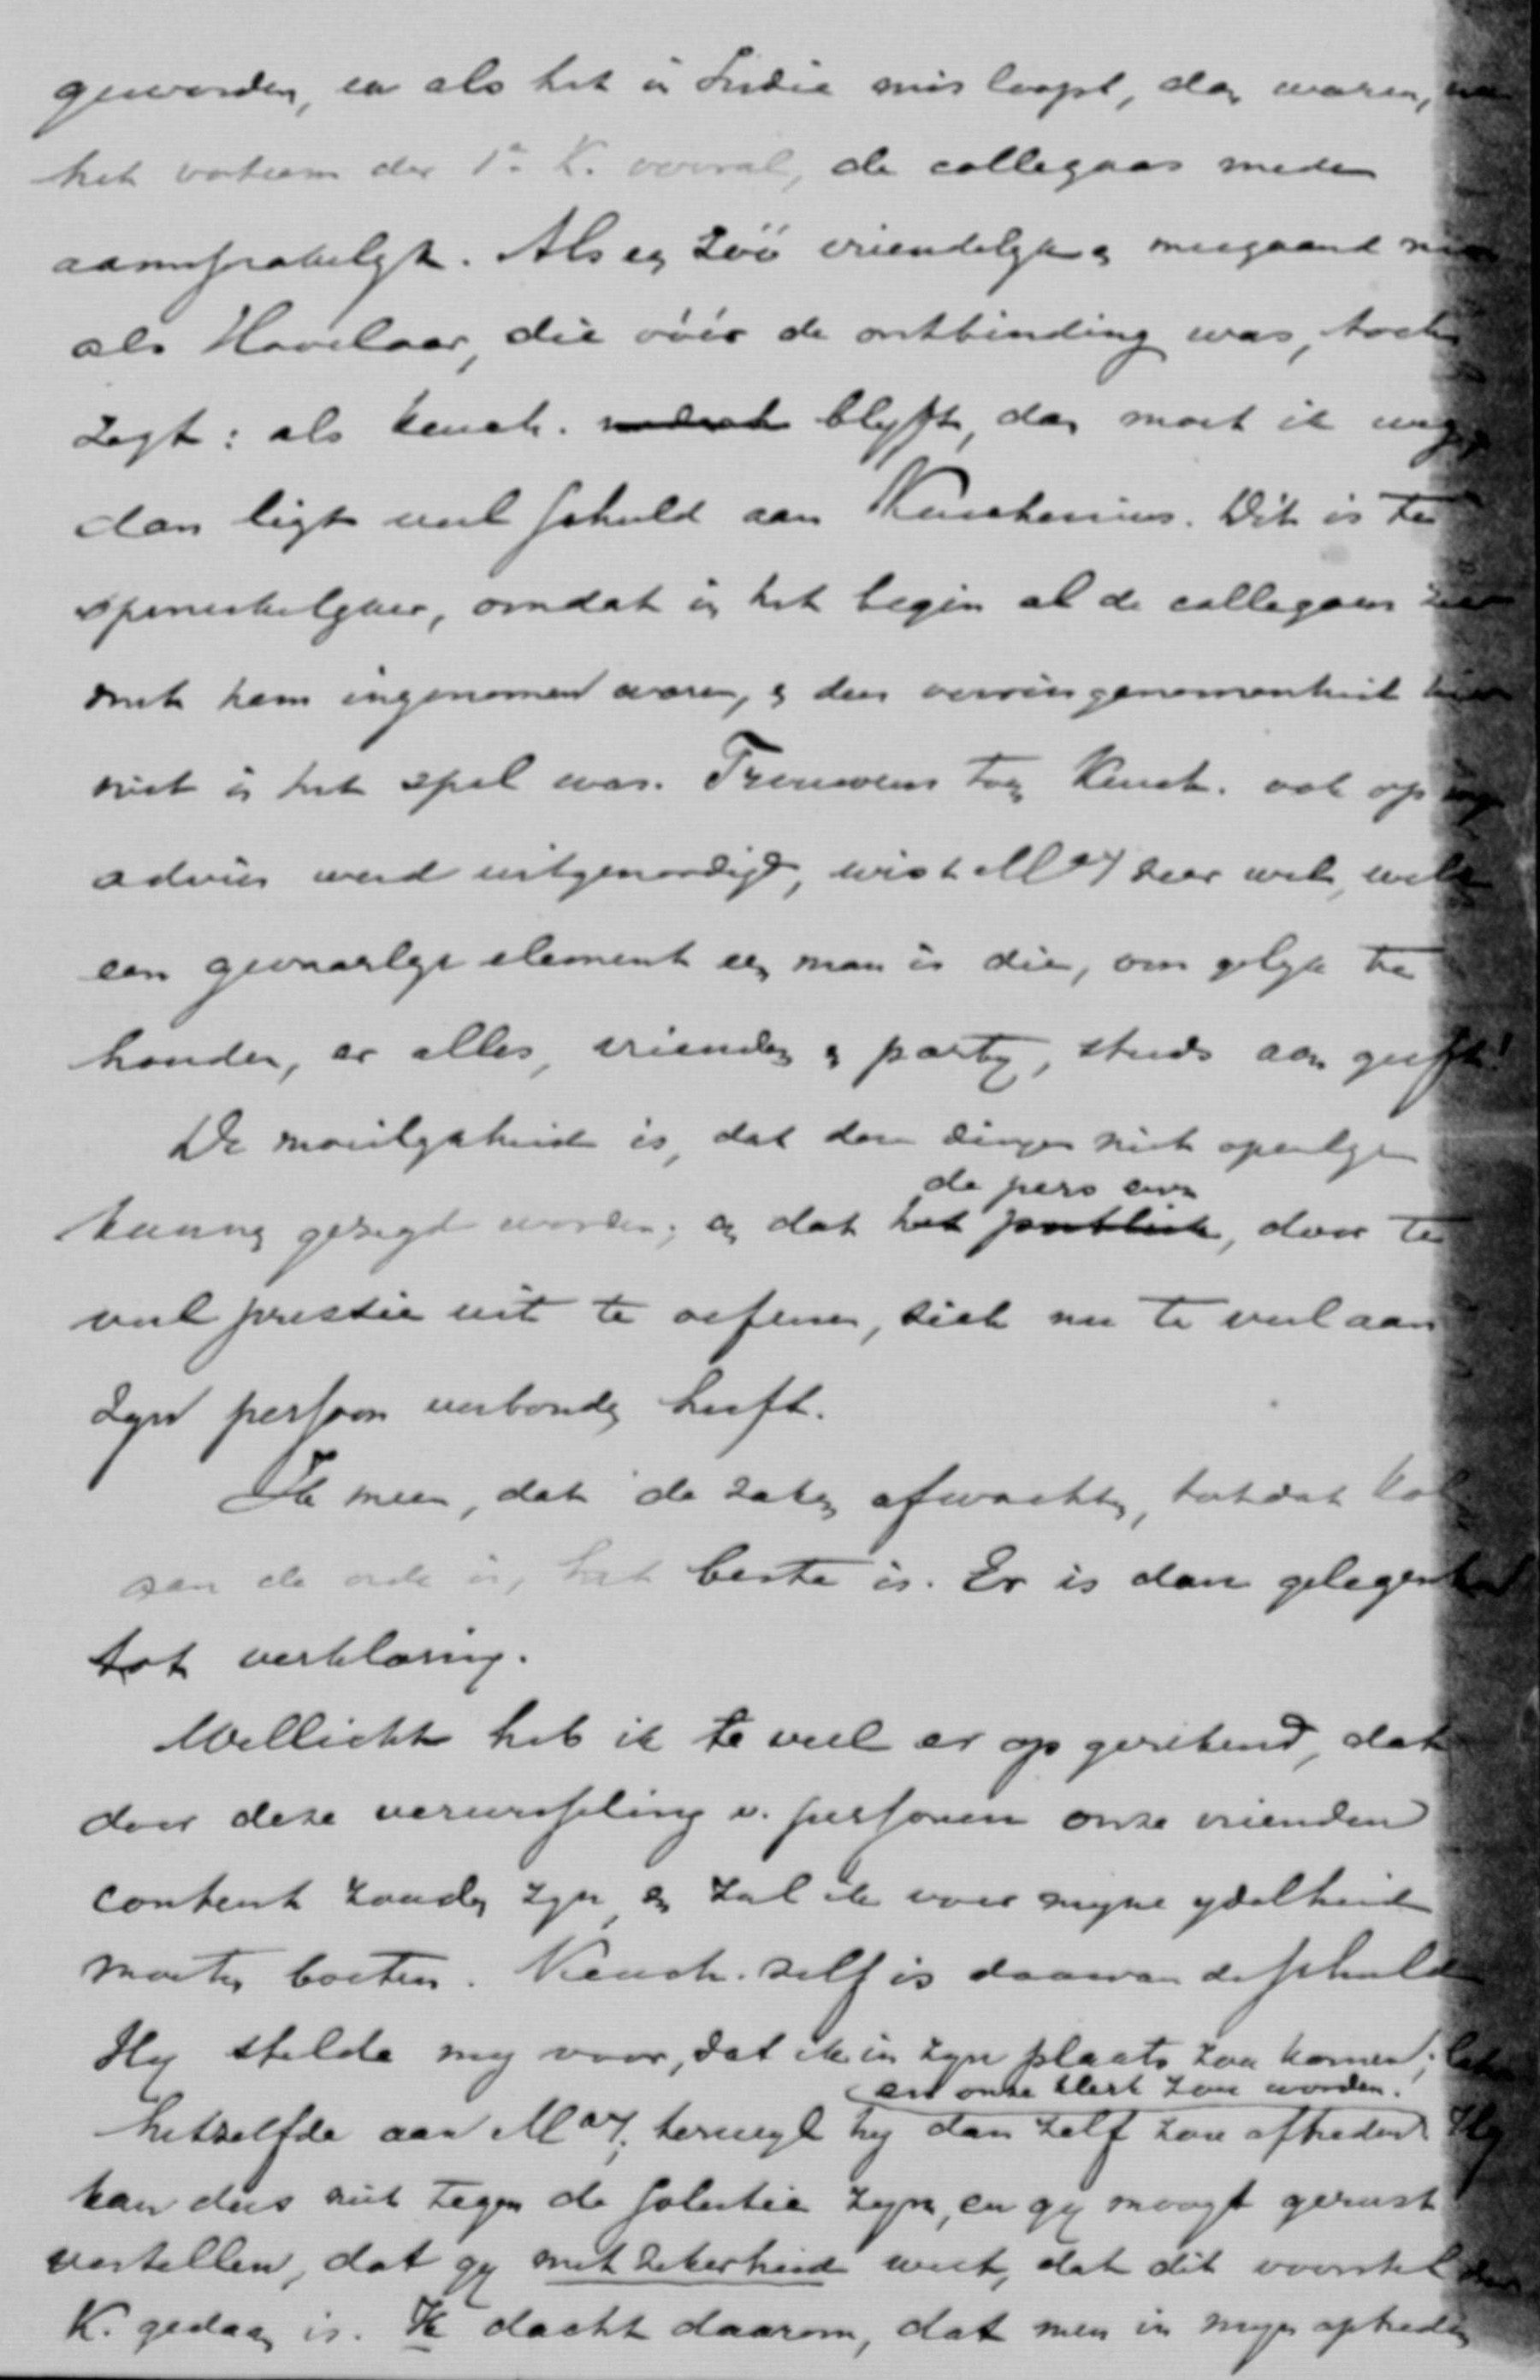 geworden, en als het in Indië mis loopt, dan waren, na
het votum der 1e K. vooral, de collegaas mede
aansprakelijk. Als een zóó vriendelijk en meegaand man
als Havelaar, die vóór de ontbinding was, toch
zegt: als Keuch. blijft, dan moet ik weg,
dan ligt veel schuld aan Keuchenius. Dit is te
opmerkelijker, omdat in het begin al de collegaas zeer
met hem ingenomen waren, en dus vooringenomenheid hier
niet in het spel was. Trouwens toen Keuch. ook op mijn
advies werd uitgenoodigd, wist May zeer wel, welk
een gevaarlijk element een man is die, om gelijk te
houden, er alles, vrienden en partij, steeds aan geeft!
De moeilijkheid is, dat deze dingen niet openlijk
kunnen gezegd worden; en dat het publiek, door te
de pers enz
veel pressie uit te oefenen, zich nu te veel aan
zijn persoon verbonden heeft.
Ik meen, dat de zaken afwachten, totdat Kol.
aan de orde is, het beste is. Er is dan gelegenheid
tot verklaring.
Wellicht heb ik te veel er op gerekend, dat
door deze verwisseling v. personen onze vrienden
content zouden zijn, en zal ik voor mijne ijdelheid
moeten boeten. Keuch. zelf is daarvan de schuld
Hij stelde mij voor, dat ik in zijn plaats zou komen; later
hetzelfde aan May, terwijl hij dan zelf zou aftreden Hij
en onze klerk zou worden.
kan dus niet tegen de solutie zijn, en gij moogt gerust
vertellen, dat gij met zekerheid weet, dat dit voorstel door
K. gedaan is. Ik dacht daarom, dat men in mijn optreden